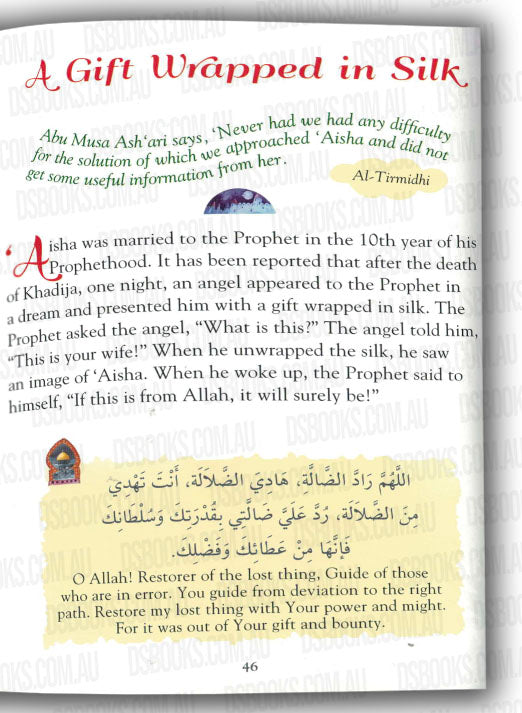 A Gift Wrapped in Silk
Abu Musa Ash‘ari says, ‘Never had we had any difficulty
for the solution of which we approached ‘Aisha and did not
get some useful information from her.
Al-Tirmidhi
‘Aisha was married to the Prophet in the 10th year of his
Prophethood. It has been reported that after the death
of Khadija, one night, an angel appeared to the Prophet in
a dream and presented him with a gift wrapped in silk. The
Prophet asked the angel, “What is this?” The angel told him,
“This is your wife!” When he unwrapped the silk, he saw
an image of ‘Aisha. When he woke up, the Prophet said to
himself, “If this is from Allah, it will surely be!”
اللَّهُمَّ رَادَّ الضَّالَّةِ، هَادِيَ الضَّلَالَةِ، أَنْتَ تَهْدِي
مِنَ الضَّلَالَةِ، رُدَّ عَلَيَّ ضَالَّتِي بِقُدْرَتِكَ وَسُلْطَانِكَ
فَإِنَّهَا مِنْ عَطَائِكَ وَفَضْلِكَ.
O Allah! Restorer of the lost thing, Guide of those
who are in error. You guide from deviation to the right
path. Restore my lost thing with Your power and might.
For it was out of Your gift and bounty.
46
DSBOOKS.COM.AU